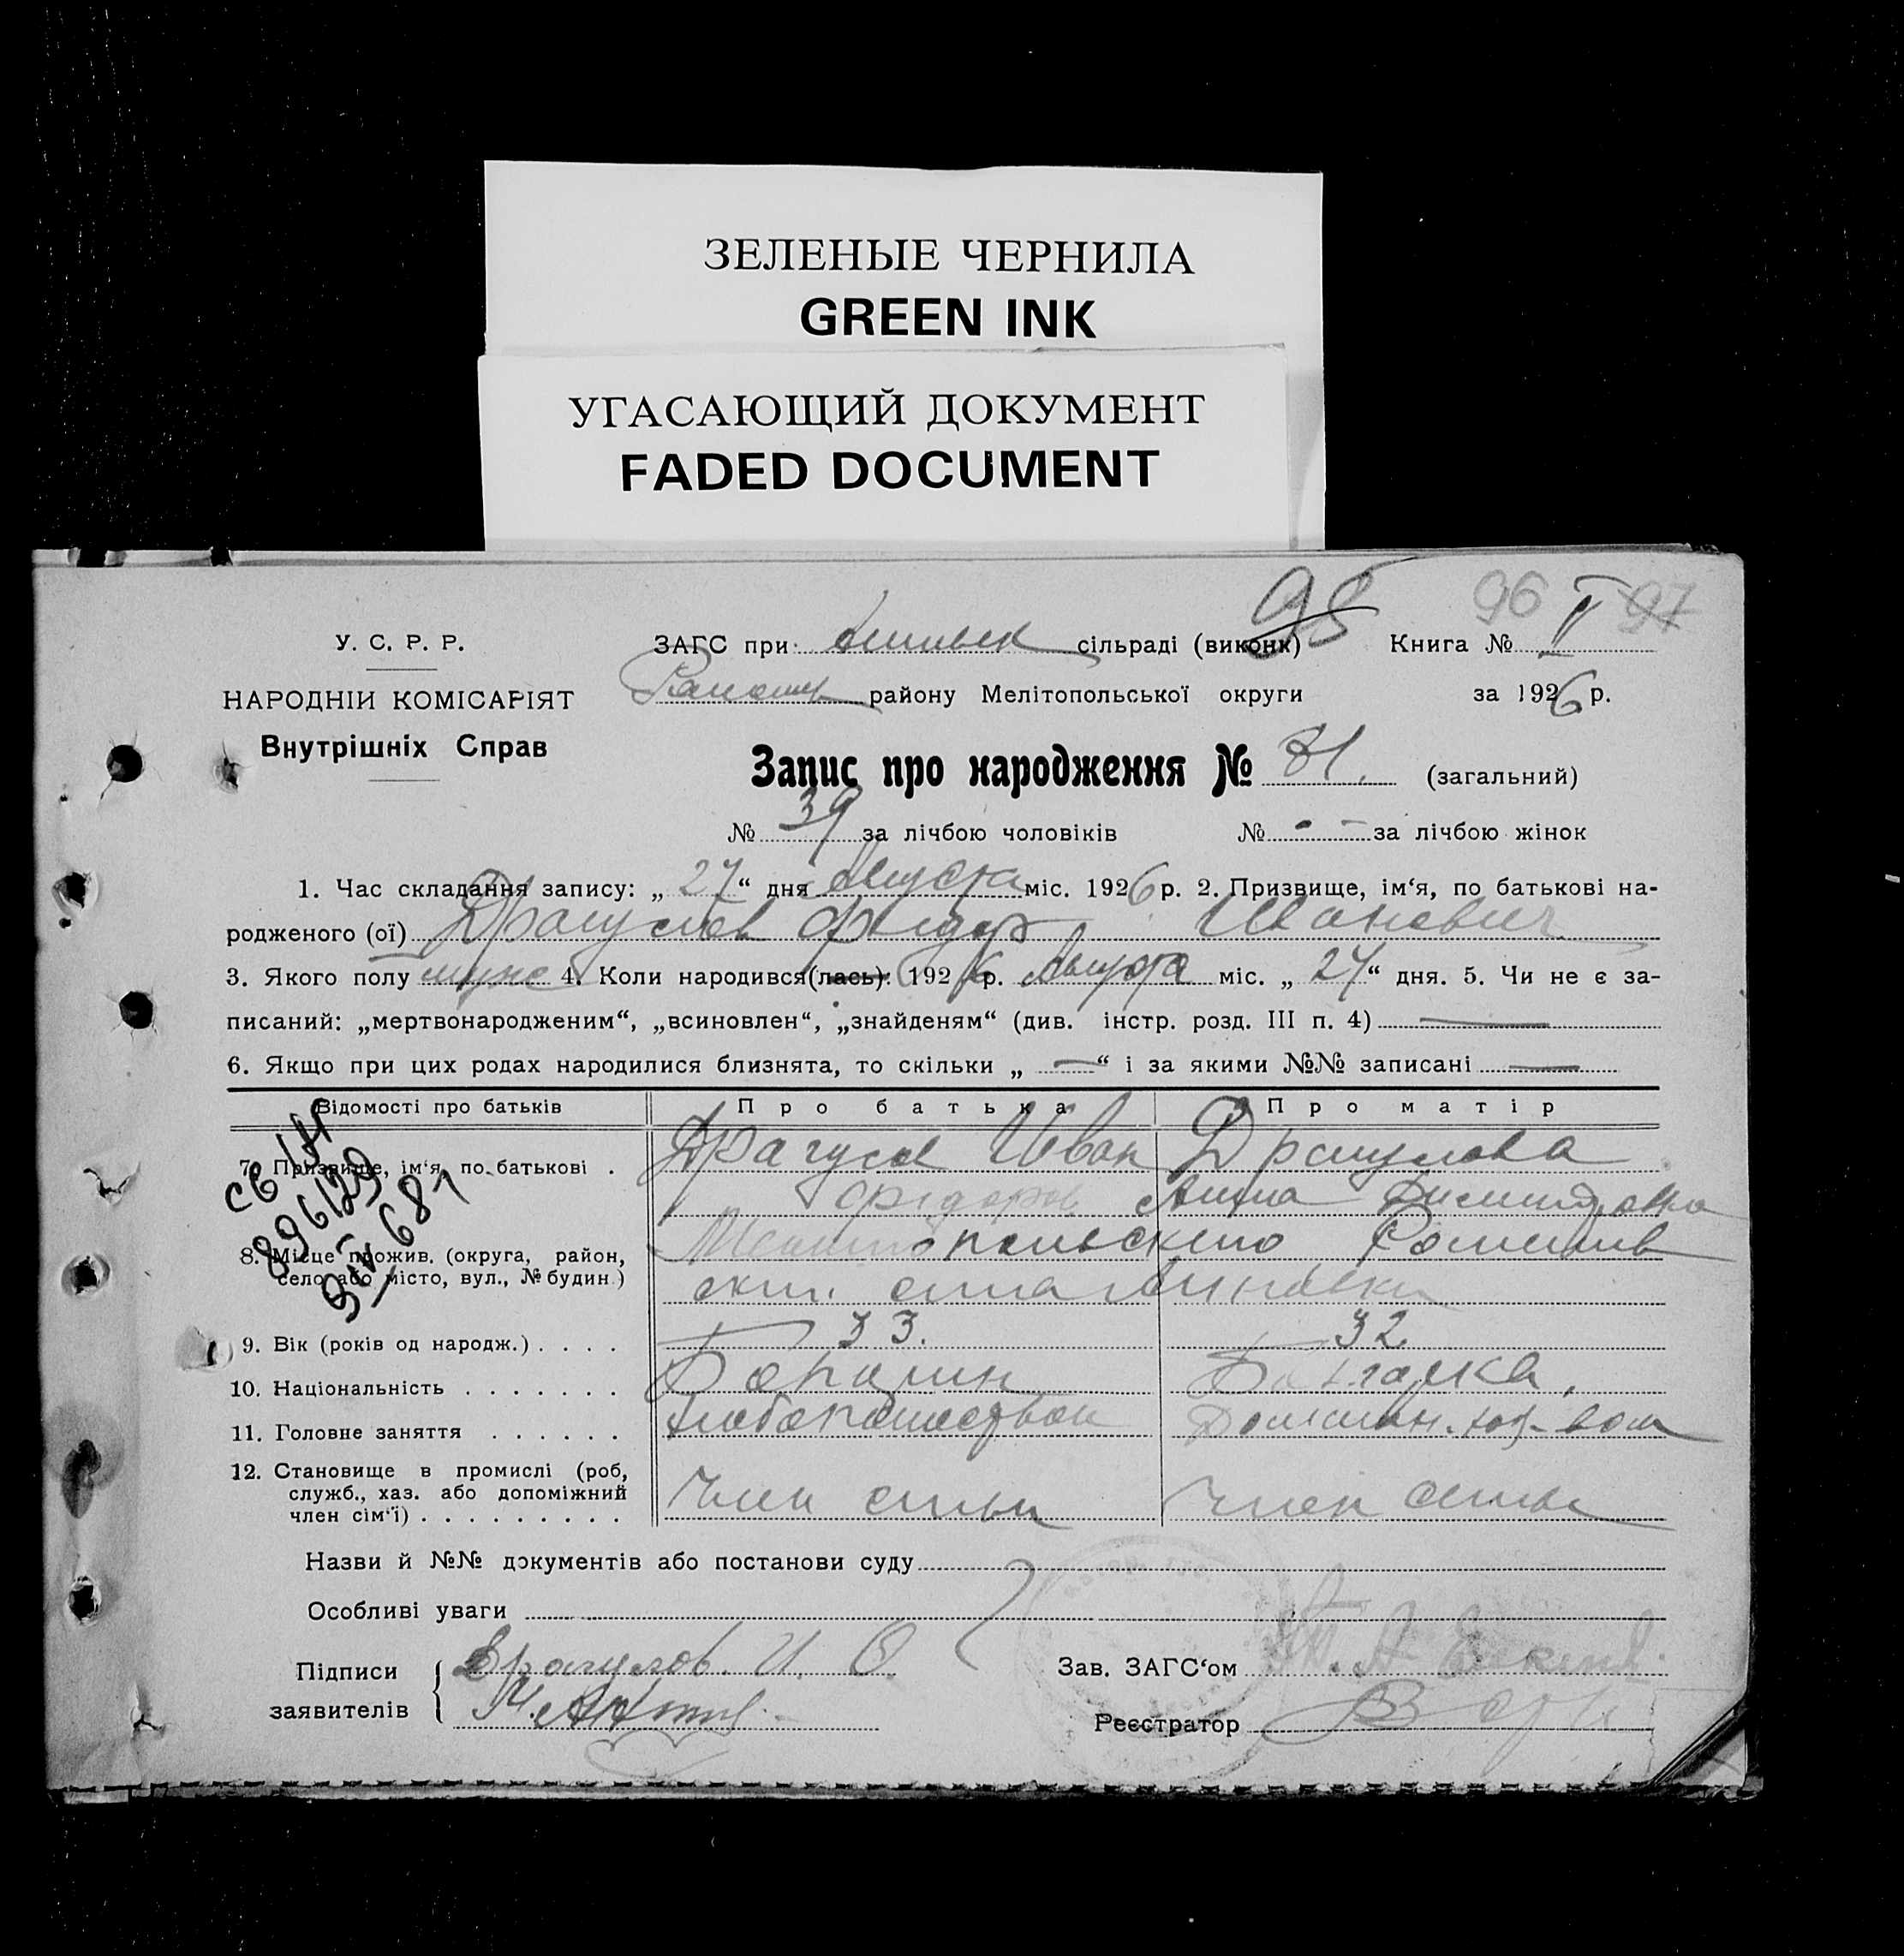 ЗЕЛЕНЫЕ ЧЕРНИЛА
GREEN INK
УГАСАЮЩИЙ ДОКУМЕНТ
FADED DOCUMENT
95 96 97
У. С. Р. Р. ЗАГС при сільраді (виконк) Книга № II
НАРОДНІЙ КОМІСАРІЯТ району Мелітопольської округи за 1926 р.
Внутрішніх Справ
Запис про народження № 81. (загальний)
№ 39 за лічбою чоловіків № - - за лічбою жінок
1. Час складання запису: „ 27 “ дня Августа міс. 1926 р. 2. Призвище, ім‘я, по батькові на-
родженого (ої) Драгулов Иванович
3. Якого полу муж 4. Коли народився(лась): 1926 р. Августа міс. „ 24 “ дня. 5. Чи не є за-
писаний: „мертвонародженим“, „всиновлен“, „знайденям“ (див. інстр. розд. III п. 4) —
6. Якщо при цих родах народилися близнята, то скільки „ — “ і за якими №№ записані —
Відомості про батьків Про батька Про матір
7. Призвище, ім‘я, по батькові . Драгулов Иван Драгулова
Анна
8. Місце прожив. (округа, район, Мелитопольского
село або місто, вул., № будин.)
9. Вік (років од народж.) . . . . 33. 32
10. Національність . . . . . . . Болгарин Болгарка,
11. Головне заняття . . . . . . Домашн. хоз-вом
12. Становище в промислі (роб,
служб., хаз. або допоміжний Член семьи Член семьи
член сім‘ї) . . . . . . . . .
Назви й №№ документів або постанови суду
Особливі уваги
Підписи Драгулов. И. Ф.
заявителів
Зав. ЗАГС‘ом
Реєстратор